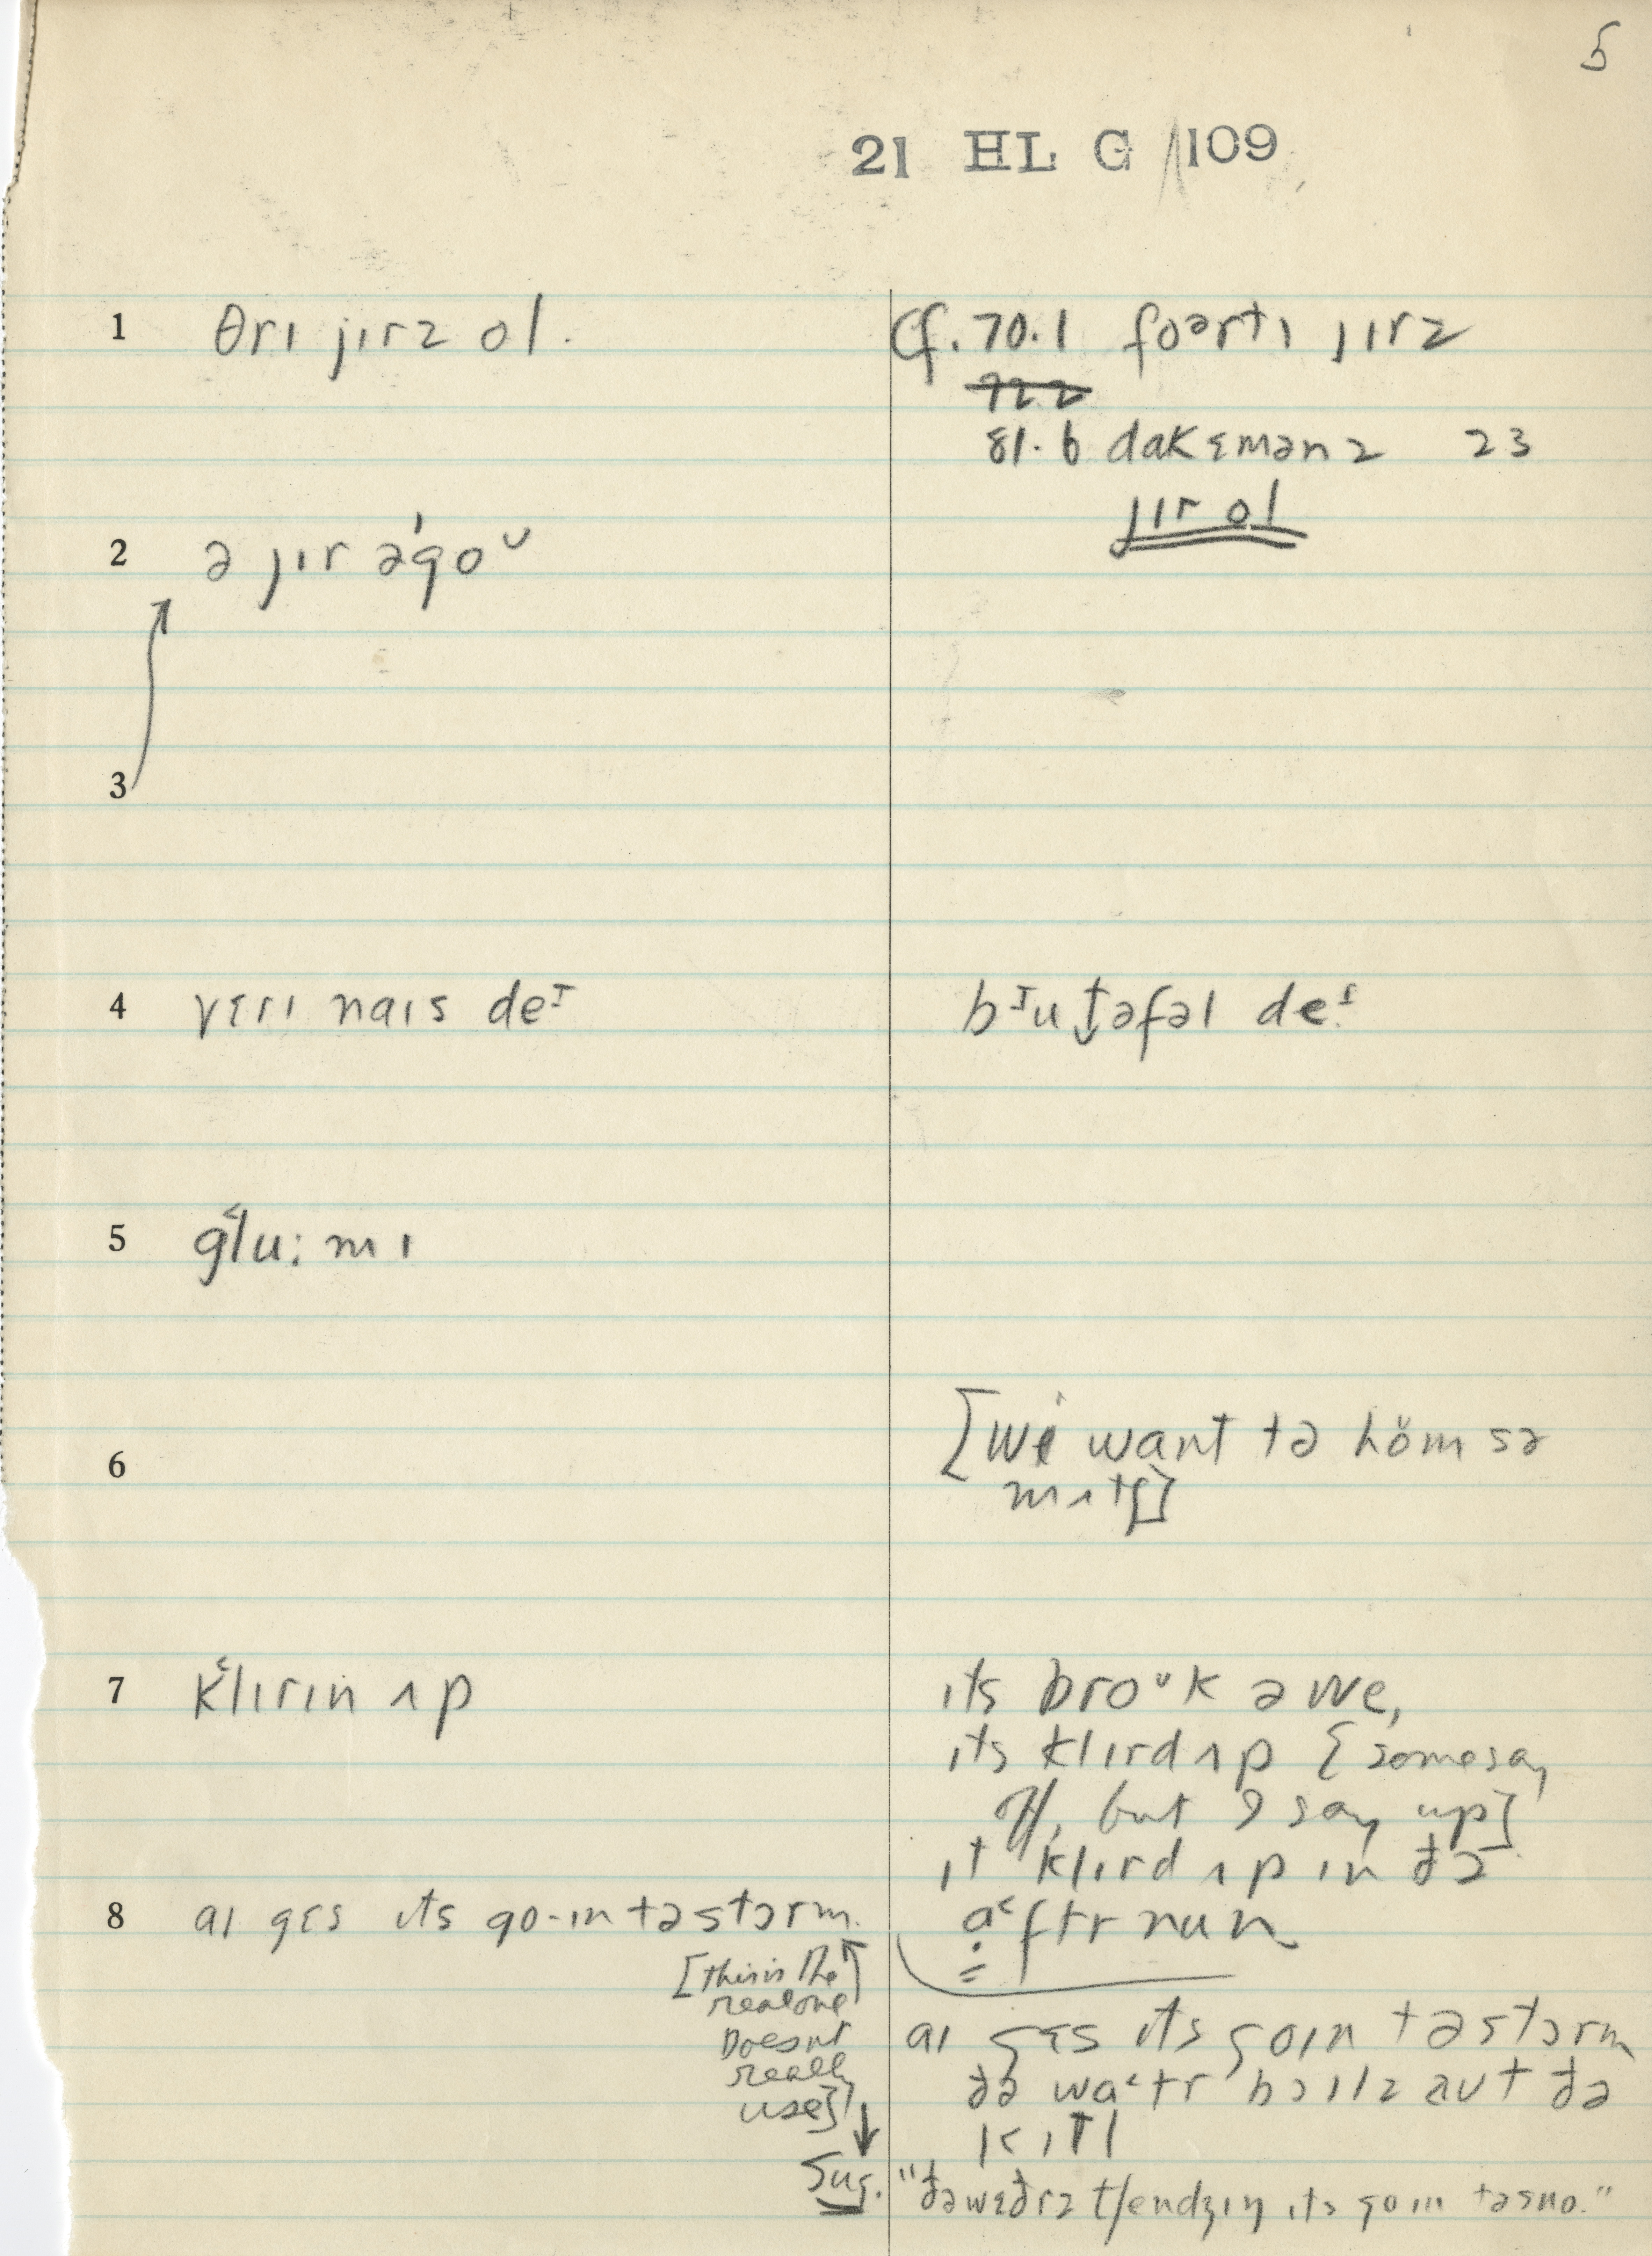 5
21 HL G 109
1 θrɪ jɪrz ol.
cf. 70.1 foərtɪ jɪrz
72.2
81.6 dakɛmənz 23
jɪr ol
2 ə jɪr əˈgoᴜ
3
4 vɛrɪ naɪs deᶦ
bᶦut̬əfəl deᶦ
5 g˂lu:mɪ
6
[we want tə höm sə
mʌtʃ]
7 k˂lɪrɪn ʌp
ɪts broᶷk əwe,
ɪts klɪrd ʌp [some say
off, but I say up]
ɪt klɪrd ʌp ɪn ðə
a˂ftr nun
8 aɪ gɛs ɪts go-ɪn tə stɔrm.
[this is the
real one
Doesnt
really
use]
aɪ gɛs ɪts goɪn tə stɔrm
ðə wa˂tr bɔɪlz aut ðə
kɪtl
Sug. "ðə wɛðrz tʃendʒɪŋ ɪts goɪn tə sno."